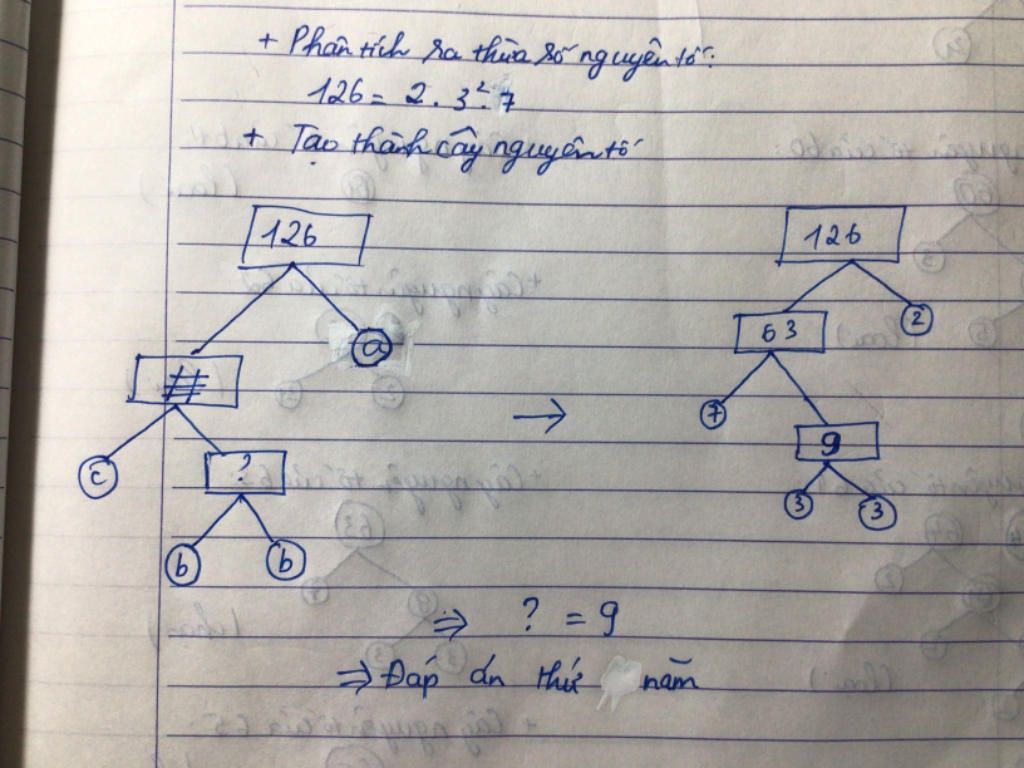 + Phân tích ra thừa số nguyên tố:
126 = 2 . 3². 7
+ Tạo thành cây nguyên tố
126
126
a
2
#
63
c
7
?
9
b b
3 3
→
⇒ ? = 9
⇒ Đáp án thứ năm